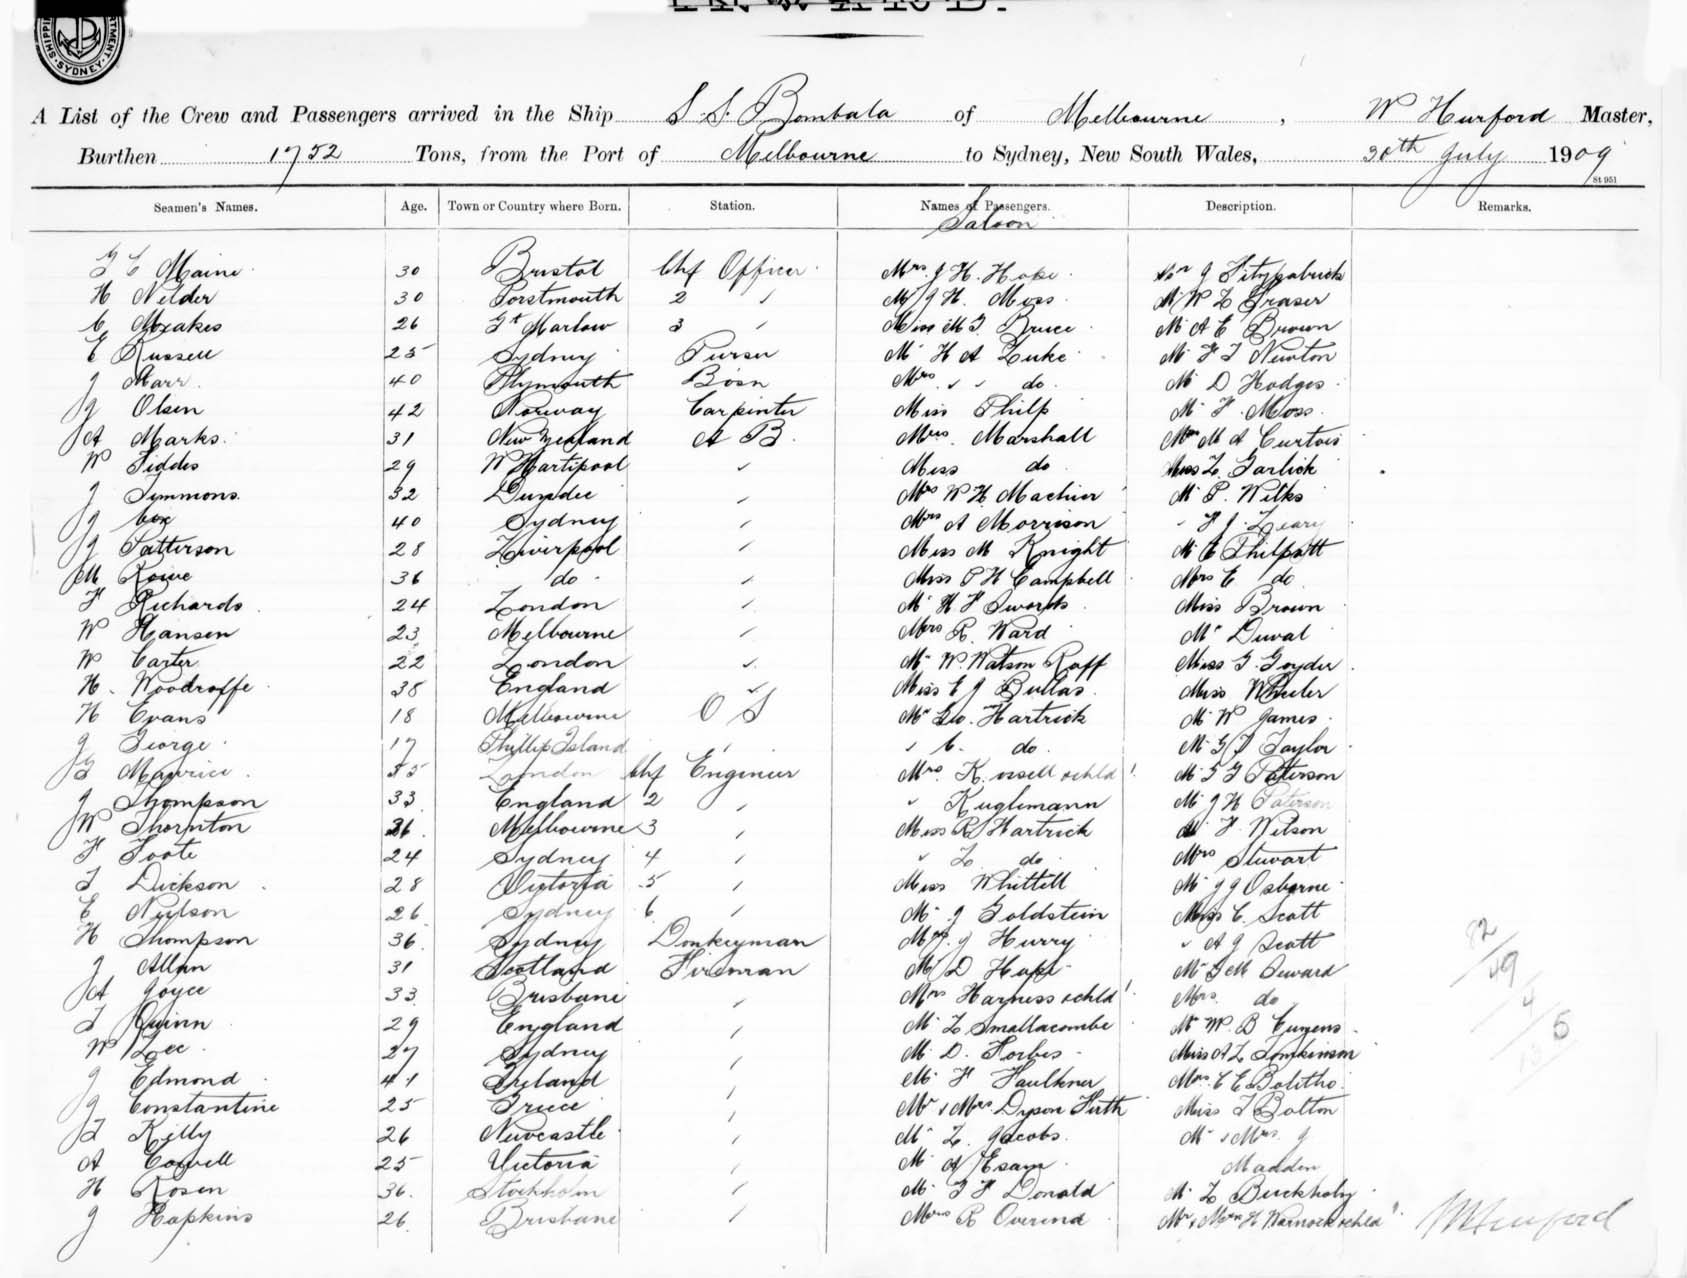 SHIPPING DEPARTMENT. SYDNEY.
A List of the Crew and Passengers arrived in the Ship S.S. Bombala of Melbourne, W Hurford Master,
Burthen 1752 Tons, from the Port of Melbourne to Sydney, New South Wales, 30th July 1909
St 951
Seamen's Names. Age. Town or Country where Born. Station. Names of Passengers. Description. Remarks.
Saloon
Maine 30 Bristol Chf Officer Mrs J H. Hope J Fitzgabrick
H Nelder 30 Porstmouth 2 " Mr J H. Moss Mr W L Fraser
C Moxakes 26 Gt Marlow 3 " Miss M J. Bruce Mr A E Brown
E Russell 25 Sydney Purser Mr H A Luke Mr F J Newton
J Marr 40 Plymouth Bosn Mrs " " do Mr D Hodges
J Olsen 42 Norway Carpinter Miss Philp Mr F. Moss
A Marks 31 New Zealand A B Mrs Marshall M A Curtois
W Fiddes 29 W Hartlpool " Miss do Miss L Garlick
J Simmons 32 Dundee " Mrs W H Machier Mr P. Wilks
J Cox 40 Sydney " Mrs A Morrison " F J Leary
J Patterson 28 Liverpool " Miss M Knight Mr E Philpott
M Rowe 36 do " Miss P H Campbell Mrs E do
F Richards 24 London " Mr H F Swords Miss Brown
W Hansen 23 Melbourne " Mrs R. Ward Mr Duval
W Carter 22 London " Mr W. Watson Raff Miss G. Goyder
H. Woodroffe 38 England " Miss E J Bullas Miss Wheeler
H Evans 18 Melbourne O S Mr Geo. Hartrick Mr W James
J George 17 Phillip Island " " C. do Mr G J Taylor
J Maurice 55 London Chf Engineer Mrs K. ossell & chld 1 Mr T G Paterson
J Thompson 33 England 2 " " Kuglemann Mr J H Paterson
W Thornton 36 Melbourne 3 " Miss R Hartrick Mr F Wilson
F Foote 24 Sydney 4 " " L do Mrs Stuvart
J Dickson 28 Victoria 5 " Miss Whittell Mr J J Osborne
E Neilson 26 Sydney 6 " Mr J Goldstein Miss C. Scott
H Thompson 36 Sydney Donkeyman J Hurry " A J Scott
J Allan 31 Scotland Fireman Mr D Hape Mr G M Seward
A Joyce 33 Brisbane " Mrs Harness & chld 1 Mrs do
J Quinn 29 England " Mr L Smallacombe Mr W. B Cuzens
W Lee 27 Sydney " Mr D. Forbes Miss A L Tomkinson
J Edmond 41 Ireland " Mr F Faulkner Mrs C E Bolitho
J Constantine 25 Greece " Mr & Mrs Dyson Firth Miss J Bolton
J Kelly 26 Newcastle " Mr L. Jacobs Mr & Mrs J
A Cowell 25 Victoria " Mr A Esam Madden
H Rosen 36 Stockholm " Mr J F Donald Mr L Buckholy
J Hopkins 26 Brisbane " Mrs R Overend Mr & Mrs H Warnock & chld 1
W Hurford